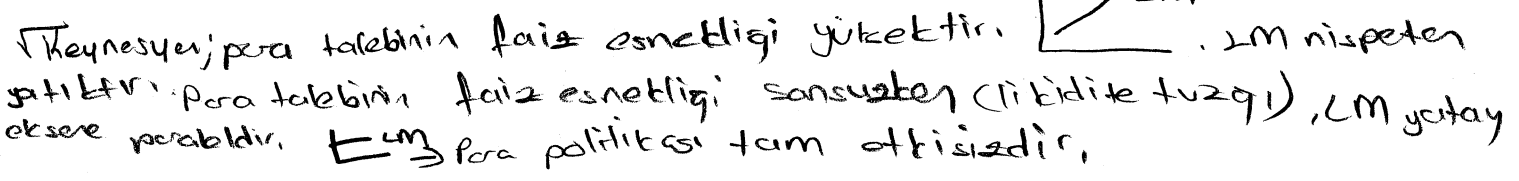 √Keynesyen; para talebinin faiz esnekliği yüksektir. LM nispeten
yatıktır. Para talebinin faiz esnekliği sonsuzken (likidite tuzağı), LM yatay
eksene paraleldir. LM → Para politikası tam etkisizdir.